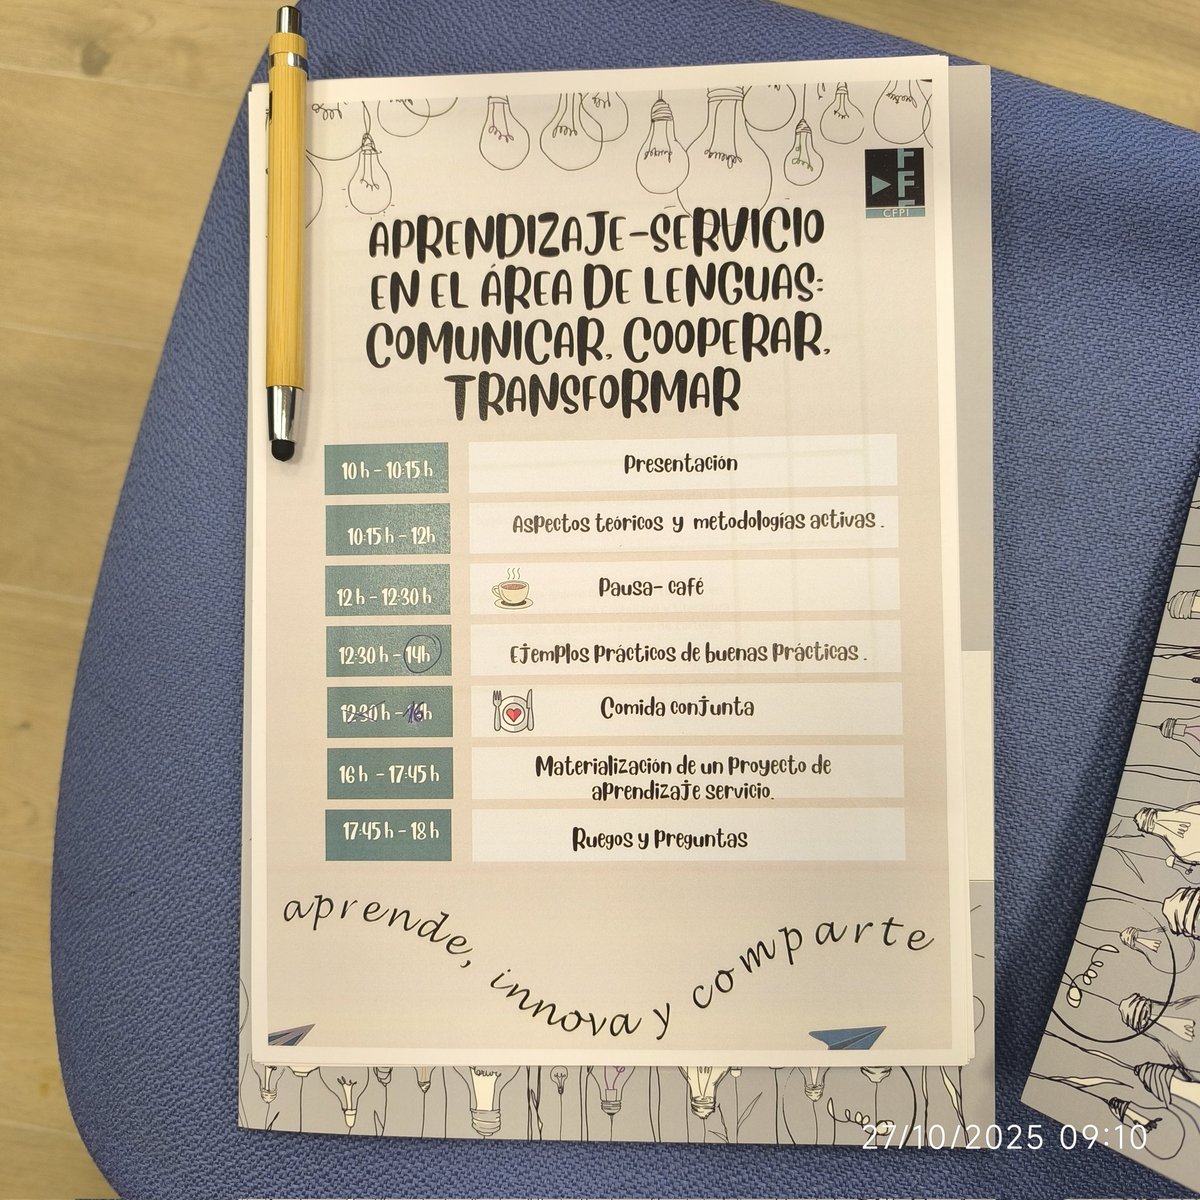 CFPI
APRENDIZAJE-SERVICIO
EN EL ÁREA DE LENGUAS:
COMUNICAR, COOPERAR,
TRANSFORMAR
10 h - 10:15 h
Presentación
10:15 h - 12h
Aspectos teóricos y metodologías activas.
12 h - 12:30 h
Pausa- café
12:30 h - 14h
Ejemplos prácticos de buenas prácticas.
12:30 h - 16h
Comida conjunta
16 h - 17:45 h
Materialización de un proyecto de
aprendizaje servicio.
17:45 h - 18 h
Ruegos y preguntas
aprende, innova y comparte
27/10/2025 09:10